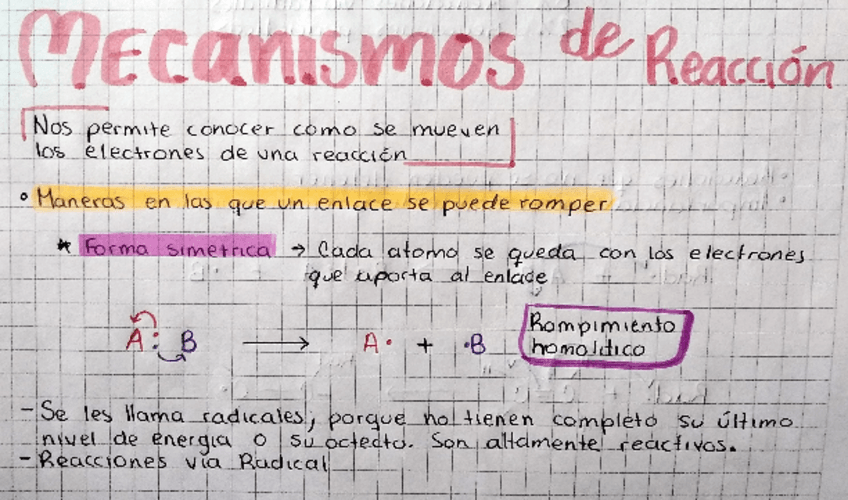 Mecanismos de Reacción
Nos permite conocer como se mueven
los electrones de una reacción
° Maneras en las que un enlace se puede romper
* Forma simetrica → Cada atomo se queda con los electrones
que aporta al enlace
A : B → A· + ·B
Rompimiento
homolitico
- Se les llama radicales, porque no tienen completo su último
nivel de energia o su octecto. Son altamente reactivos.
- Reacciones via Radical